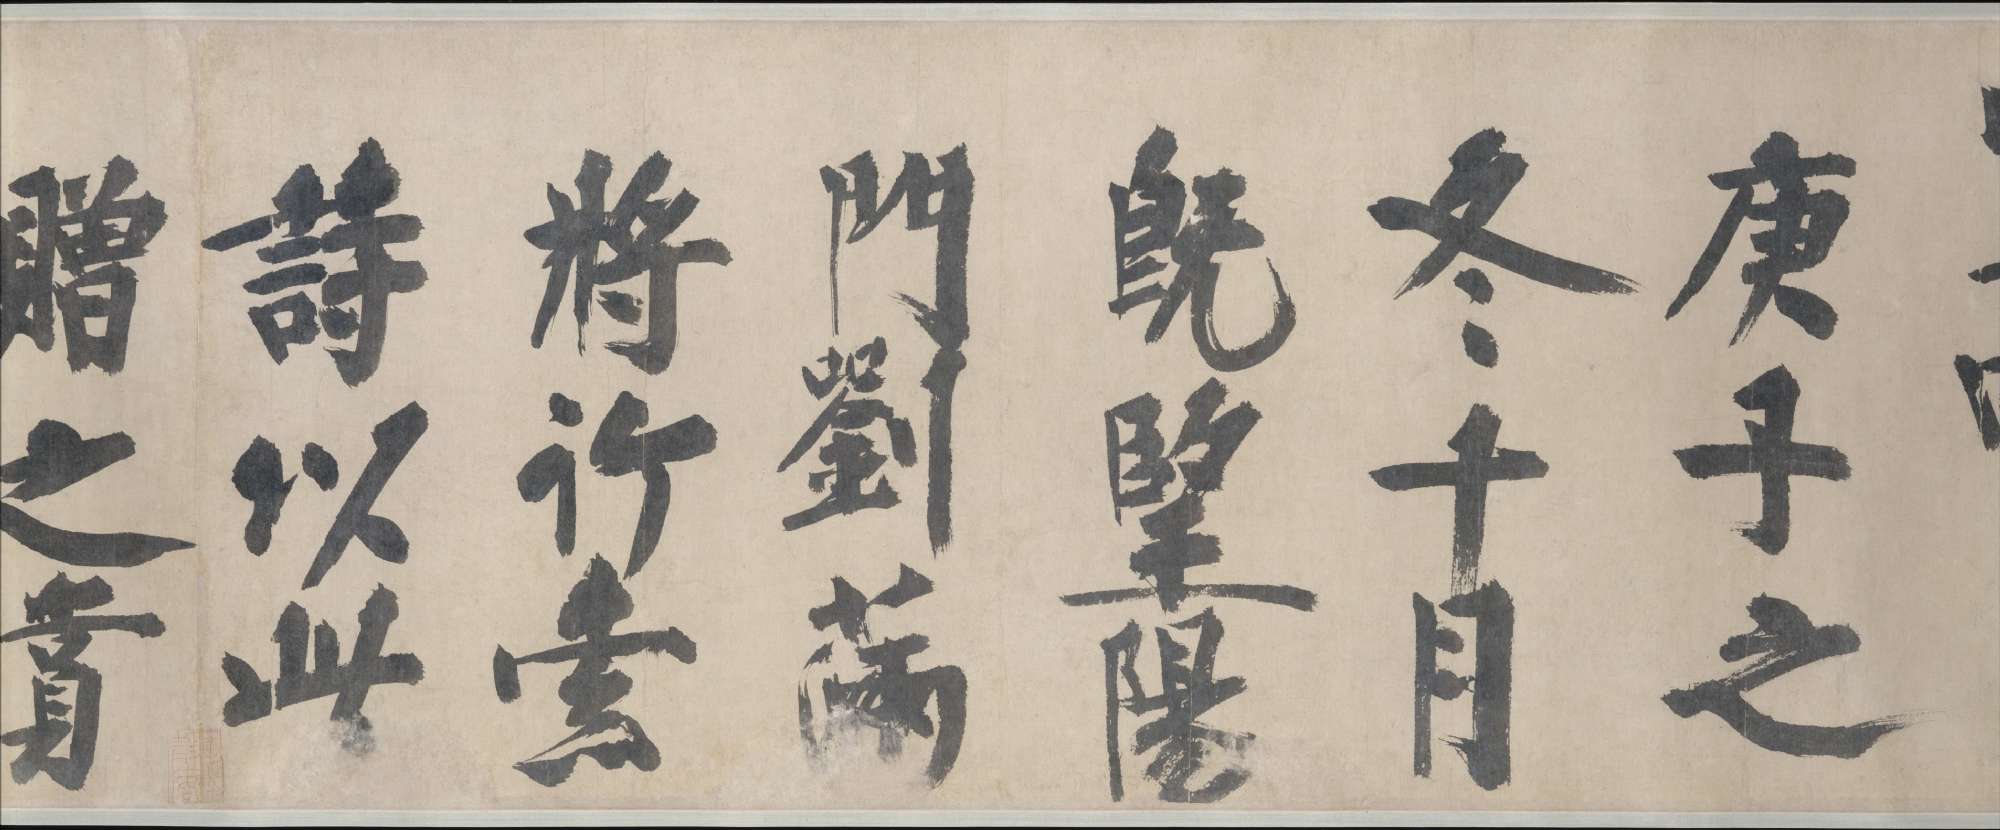 庚子之
冬十月
既望陽
門劉滿
將行索
詩以此
贈之